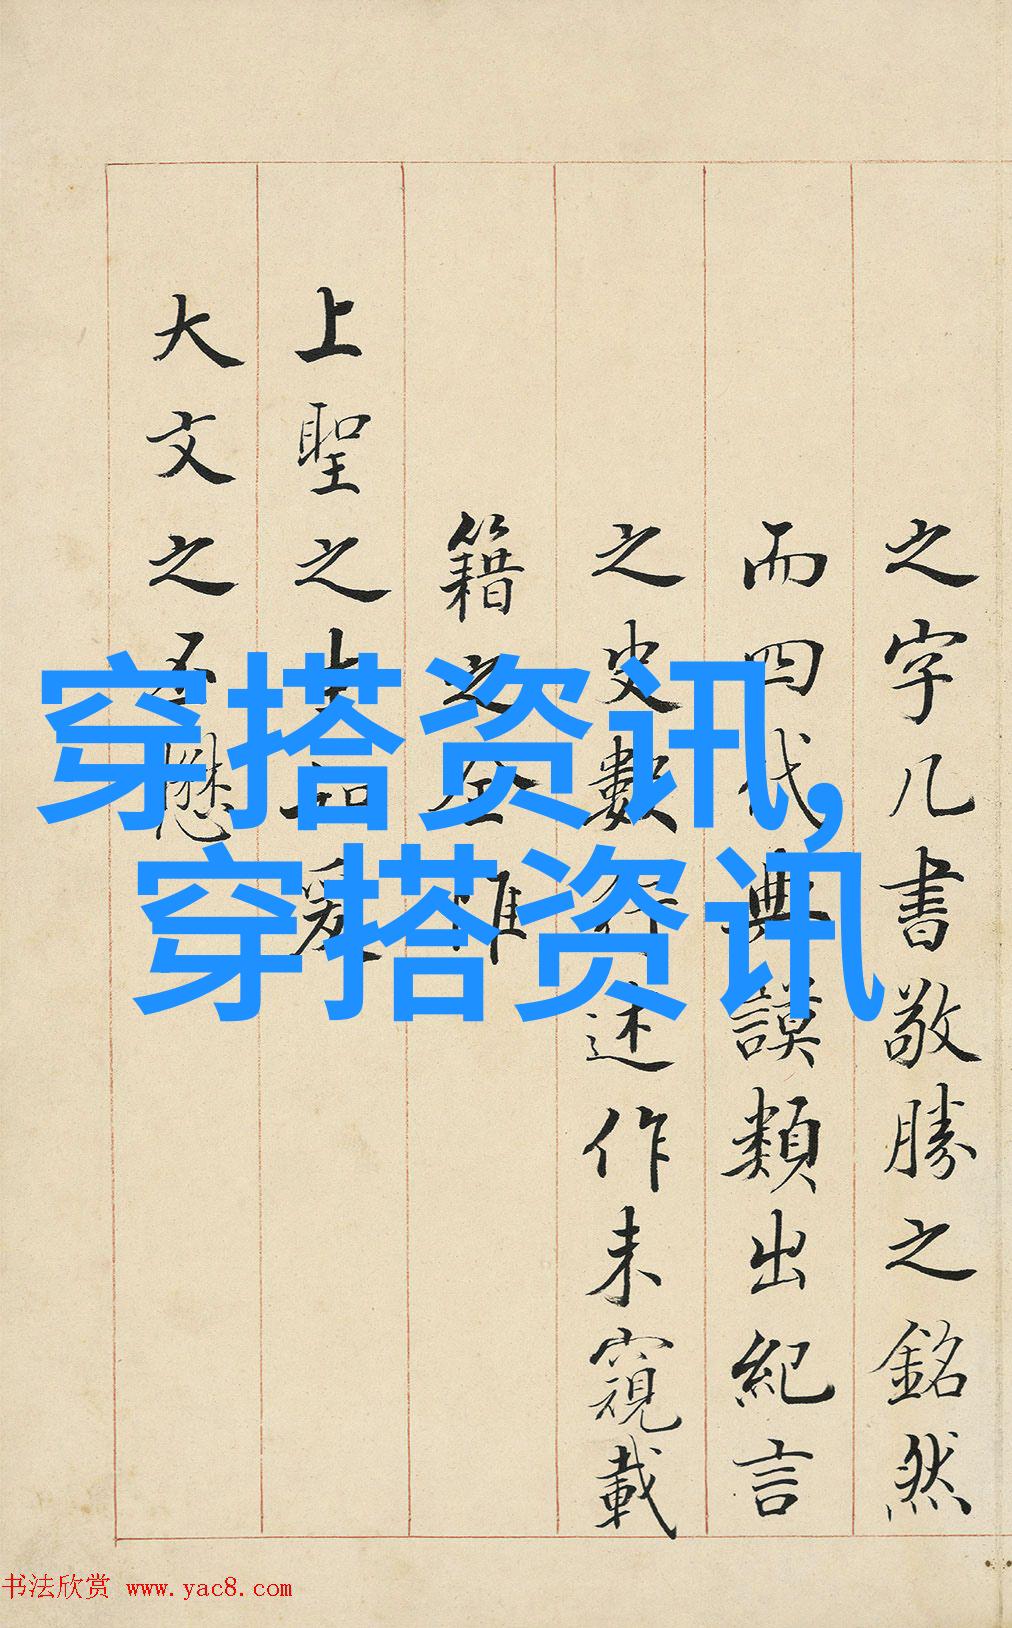 之字几書敬勝之銘然
而四代典謨類出紀言
之史數行述作未窺載
籍之全惟
上聖之爰
大文之不懋
穿搭资讯,
穿搭资讯
书法欣赏 www.yac8.com